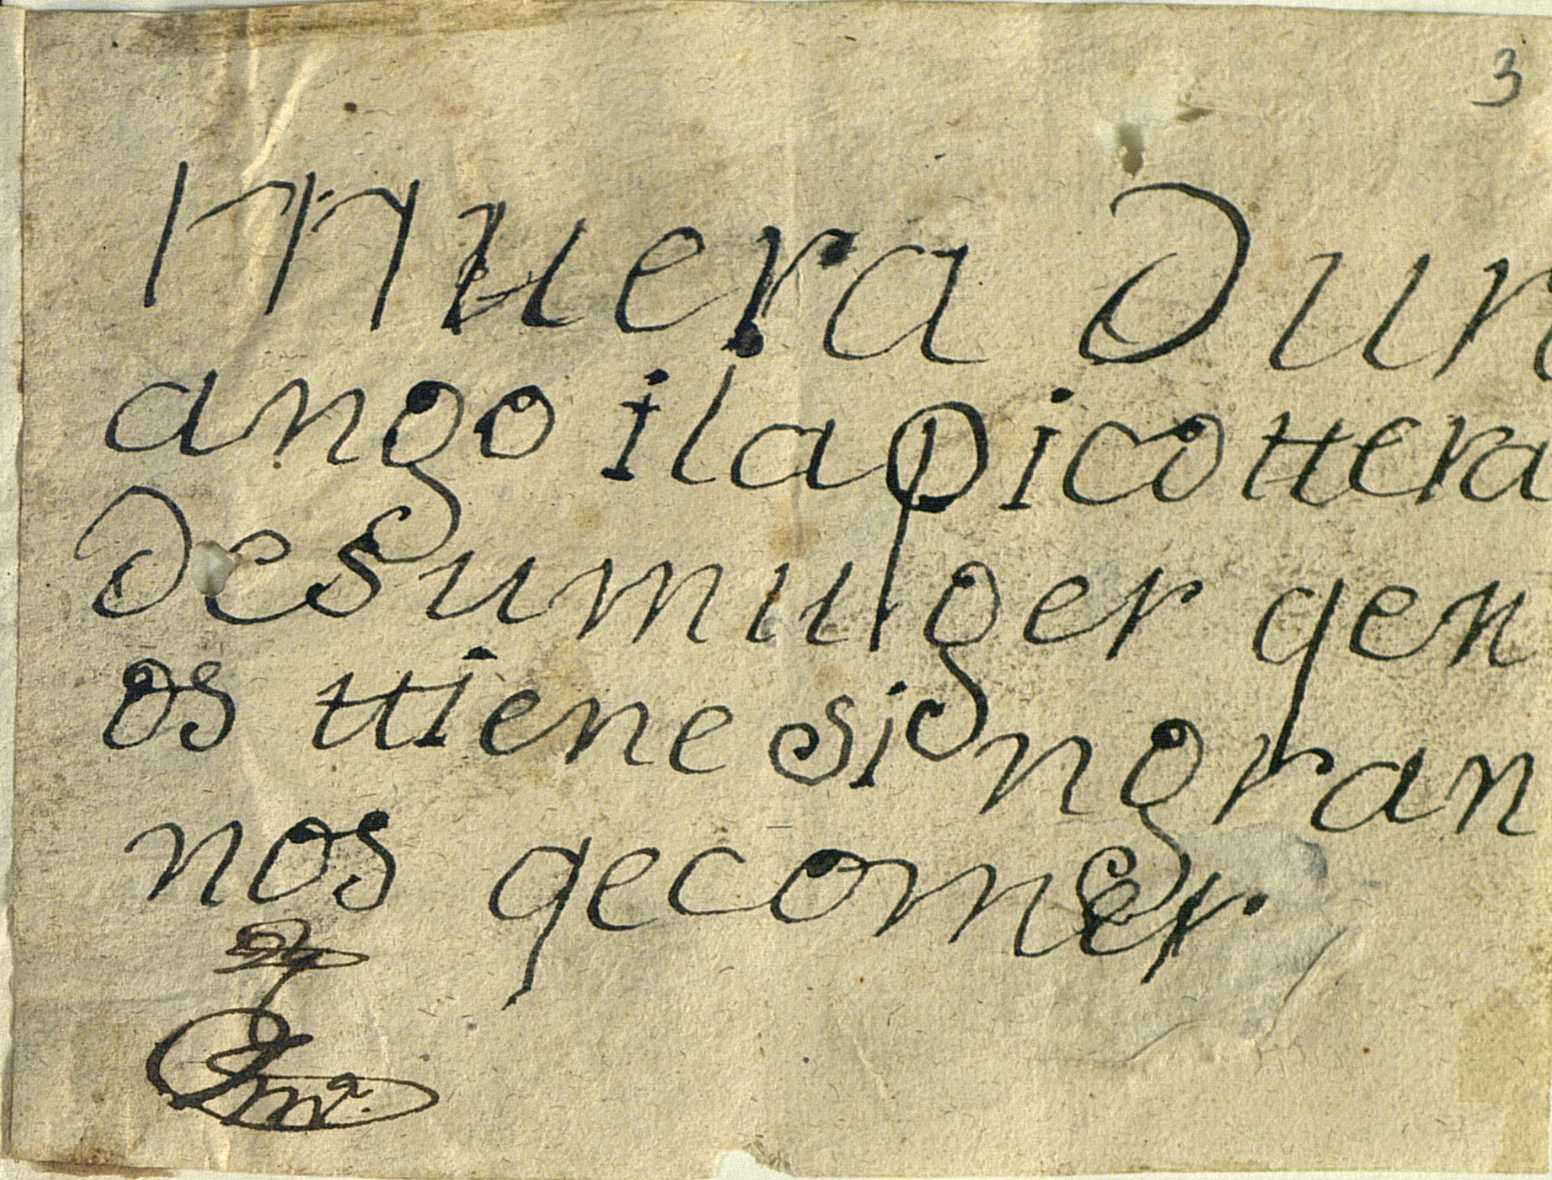 3
Muera Dur
ango i la picottera
de su muger qen
os ttiene sin gran
nos qe comer